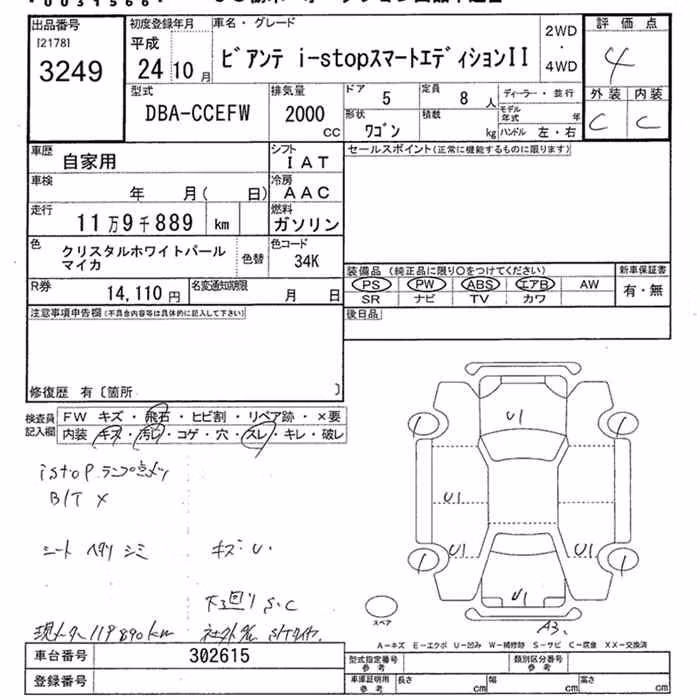 出品番号
[2178]
3249
初度登録年月
平成
24 10月
車名・グレード
ビアンテ i-stopスマートエディションII
2WD
・
4WD
評価点
4
外装 内装
C C
型式
DBA-CCEFW
排気量
2000
CC
ドア
5
定員
8人
ディーラー・並行
モデル年式 年
形状
ワゴン
積載
kg
ハンドル 左・右
車歴
自家用
シフト
IAT
セールスポイント(正常に機能するものに限ります)
車検
年 月( 日)
冷房
AAC
走行
11万9千889 km
燃料
ガソリン
色
クリスタルホワイトパール
マイカ
色替
色コード
34K
装備品 (純正品に限り○をつけてください)
新車保証書
PS PW ABS エアB AW
SR ナビ TV カワ
有・無
R券
14,110円
名変通知期限
月 日
後日品
注意事項申告欄(不具合内容等は具体的に記入して下さい)
修復歴 有〔箇所 〕
検査員
記入欄
FW キズ・飛石・ヒビ割・リペア跡・×要
内装・キズ・汚れ・コゲ・穴・スレ・キレ・破レ
istop ランプ点メツ
B/T ×
シート ヘタリ シミ キズ・U・
下廻り S.C
現メーター119890km
U1
U1
U1
U1
U1
1
1
1
1
A3.
スペア
A-キズ E-エクボ U-凹み W-補修跡 S-サビ C-腐食 XX-交換済
車台番号
302615
登録番号
型式指定番号
参考
類別区分番号
参考
車庫証明用
参考
長さ cm
幅 cm
高さ cm